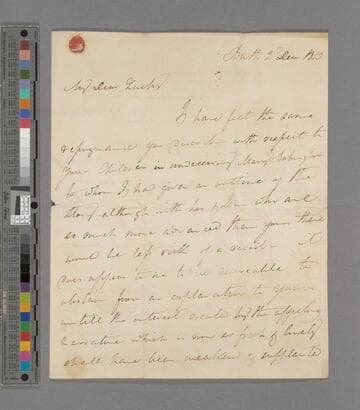 Bath 2d Dec 1813
My dear
I have felt the same
repugnance you describe with respect to
your Children in undeceiving
to whom I had given an outline of the
story although with his who are
so much more advanced than yours there
would be less risk of a It
does appear to me to be desirable to
abstain from an explanation to yours
untill the interest created by the affecting
narrative which is now so fresh & lively
shall have been weakend or supplanted